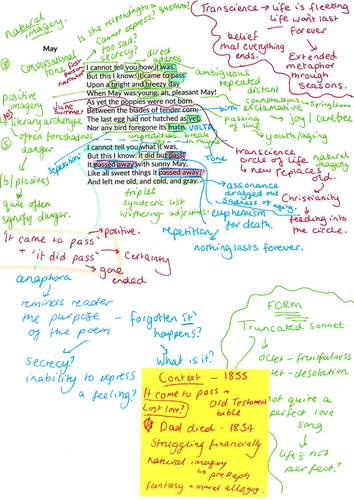 natural imagery.
Is she responding to a question?
Cannot express?
too sad?
secrecy?
direct address
conversational tone
first person narration
May
I cannot tell you how it was;
But this I know: it came to pass
Upon a bright and breezy day
When May was young; ah, pleasant May!
As yet the poppies were not born
Between the blades of tender corn;
The last egg had not hatched as yet,
Nor any bird foregone its mate. VOLTA
I cannot tell you what it was,
But this I know: it did but pass.
It passed away with sunny May,
Like all sweet things it passed away,
And left me old, and cold, and gray.
Transcience → life is fleeting
life won't last forever
belief that everything ends.
Extended metaphor through seasons.
ambiguous
repeated
distant
connotations → Spring/summer
exclamative
joy / carefree
birth
passing of time
youth/aging
positive imagery
June Summer
literary archetype
often foreshadows danger
/b/ plosives
quite often signify danger.
repetition
Tone
transcience
circle of life
→ new replaces old.
natural imagery
Christianity
feeding into the circle.
assonance
dragged out
sadness of aging.
euphemism for death.
triplet
syndetic list
withering adjectives
repetition
nothing lasts forever.
'it came to pass' → positive.
+ 'it did pass' → certainty
gone
ended
anaphora
reminds reader the purpose of the poem
forgotten 'it' happens?
What is it?
secrecy?
inability to express a feeling?
FORM
Truncated sonnet
octet - fruitfulness
- desolation
not quite a perfect love song
life's not perfect?
Context - 1855
It came to pass → Old Testament bible
Lost love?
Dad died - 1854
Struggling financially
natural imagery
fantasy + moral allegory.